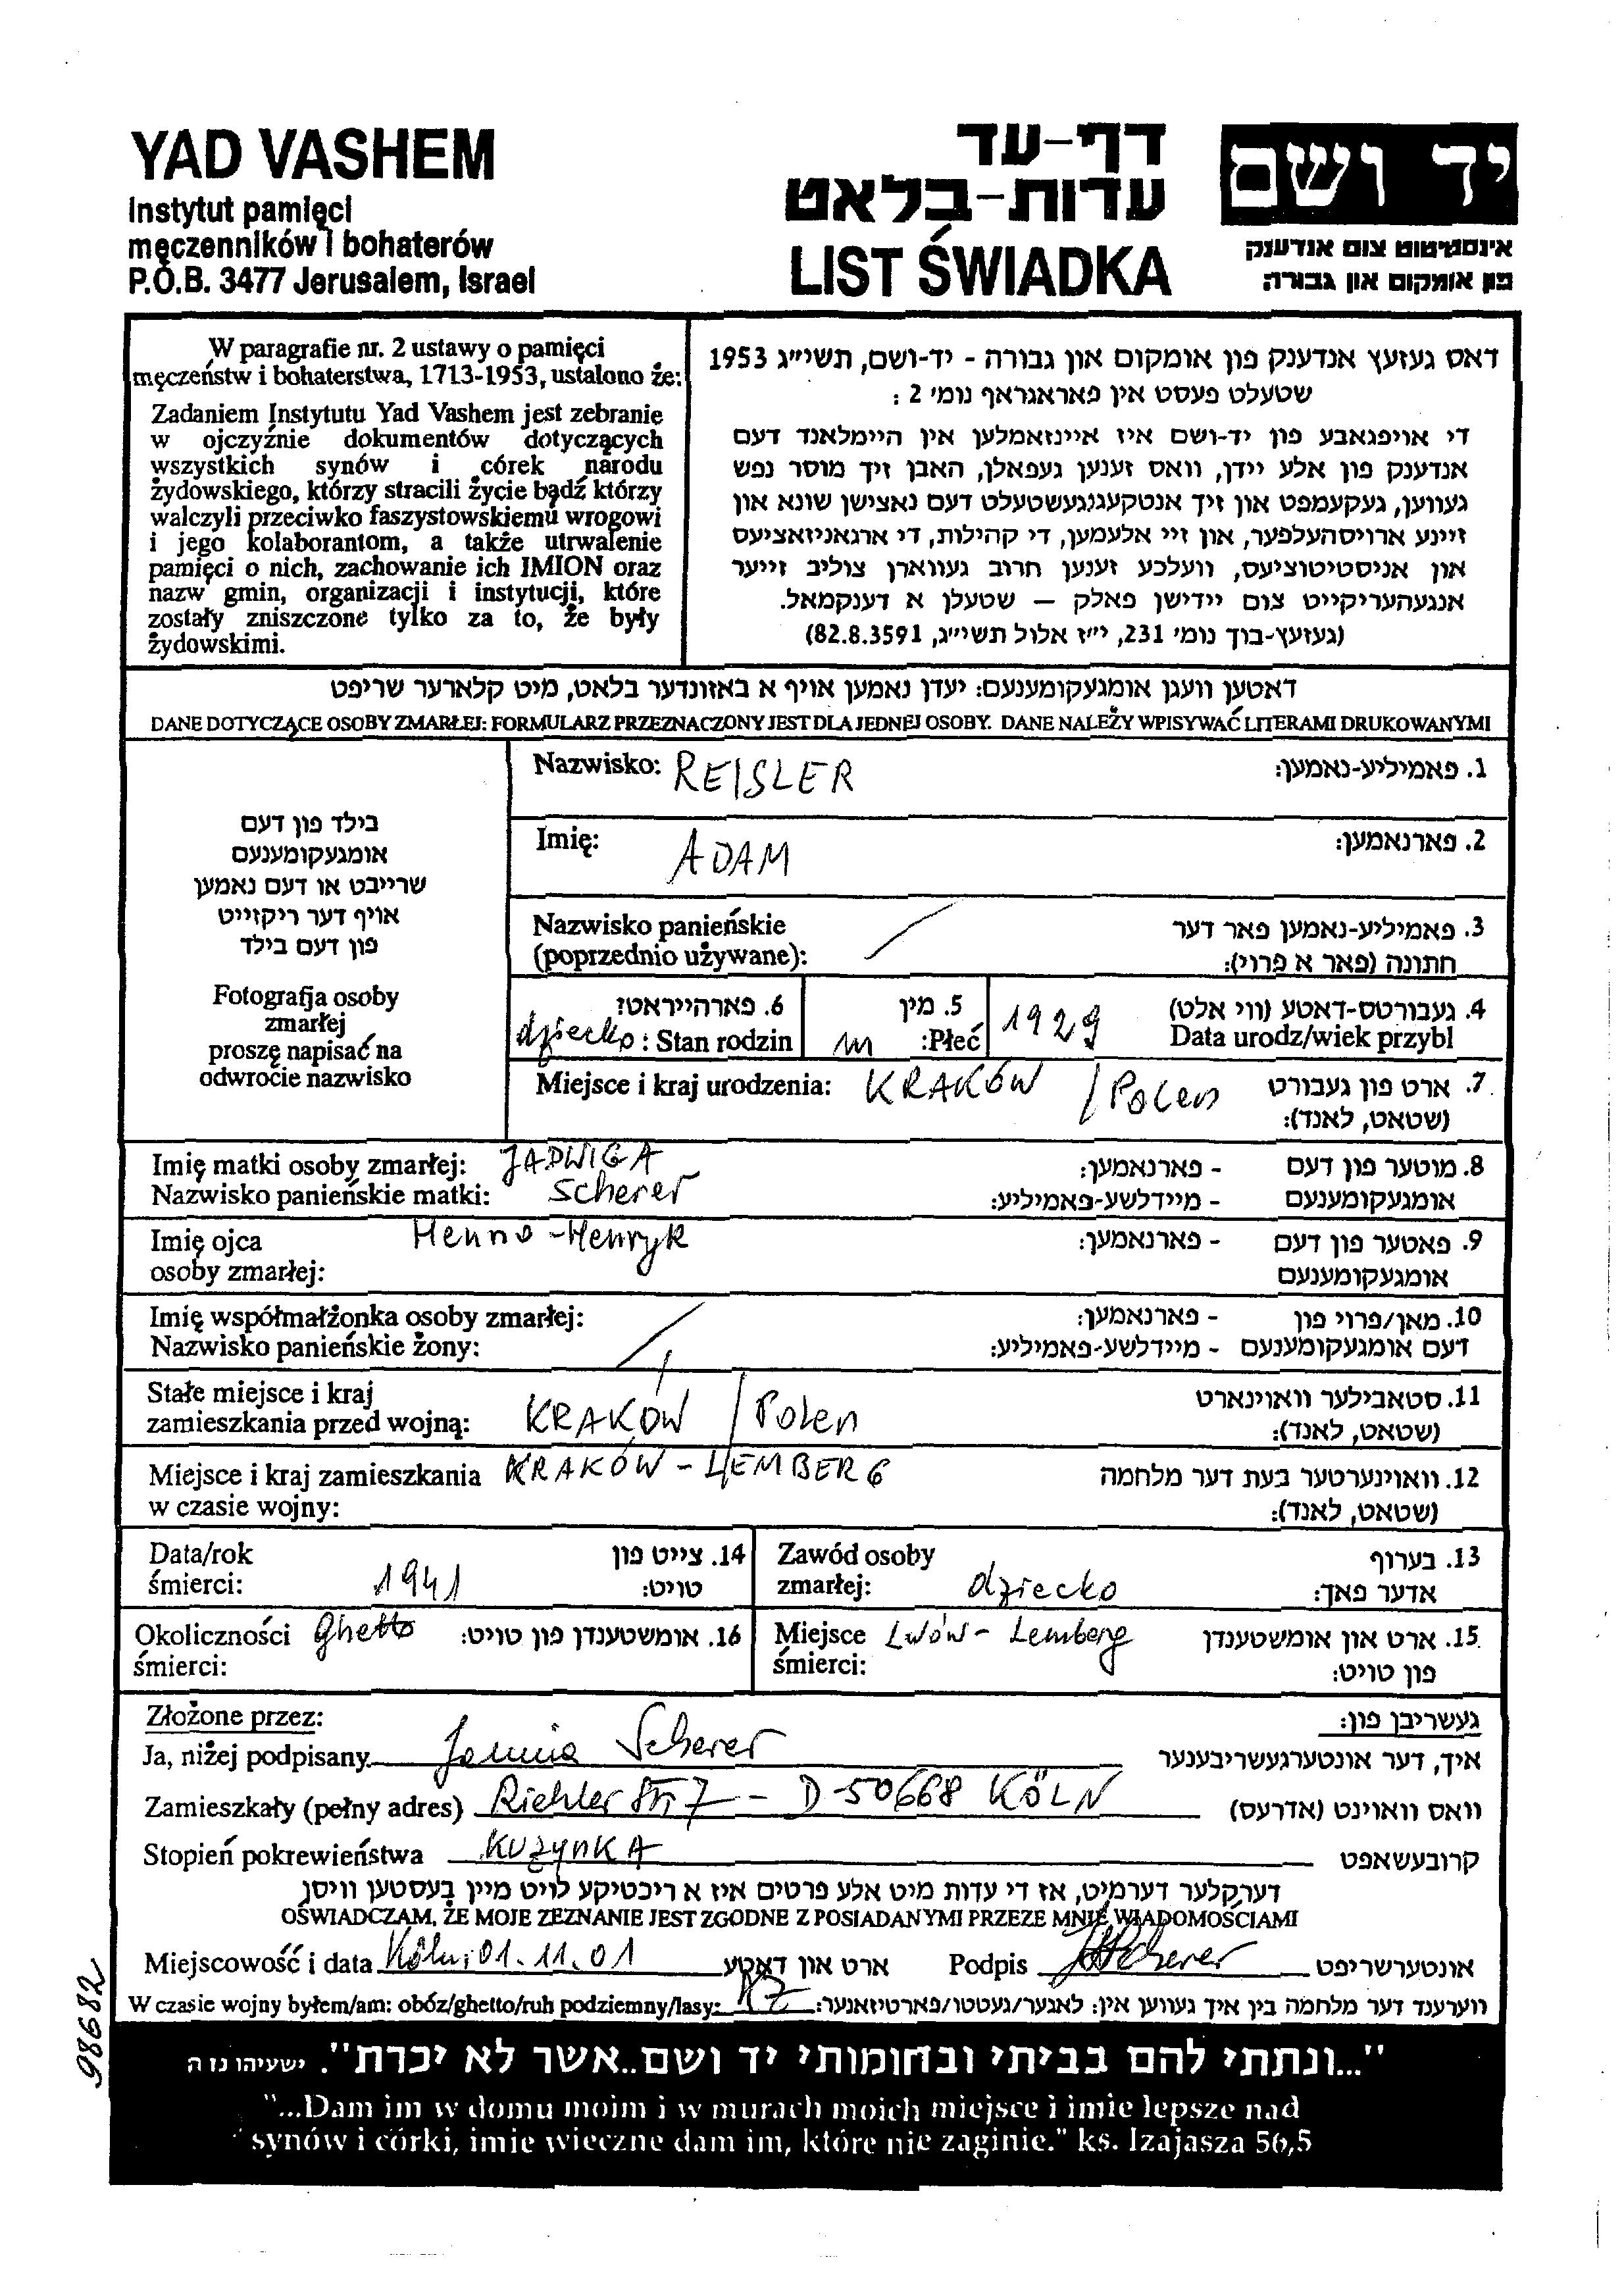 YAD VASHEM
Instytut pamięci
męczenników i bohaterów
P.O.B. 3477 Jerusalem, Israel
דף-עד
עדות-בלאט
LIST ŚWIADKA
יד ושם
אינסטיטוט צום אנדענק
פון אומקום און גבורה
W paragrafie nr. 2 ustawy o pamięci
męczeństw i bohaterstwa, 1713-1953, ustalono że:
Zadaniem Instytutu Yad Vashem jest zebranie
w ojczyźnie dokumentów dotyczących
wszystkich synów i córek narodu
żydowskiego, którzy stracili życie bądź którzy
walczyli przeciwko faszystowskiemu wrogowi
i jego kolaborantom, a także utrwalenie
pamięci o nich, zachowanie ich IMION oraz
nazw gmin, organizacji i instytucji, które
zostały zniszczone tylko za to, że były
żydowskimi.
דאס געזעץ אנדענק פון אומקום און גבורה - יד-ושם, תשי״ג 1953
שטעלט פעסט אין פאראגראף נומ׳ 2 :
די אויפגאבע פון יד-ושם איז איינזאמלען אין היימלאנד דעם
אנדענק פון אלע יידן, וואס זענען געפאלן, האבן זיך מוסר נפש
געווען, געקעמפט און זיך אנטקעגנגעשטעלט דעם נאצישן שונא און
זיינע ארויסהעלפער, און זיי אלעמען, די קהילות, די ארגאניזאציעס
און אניסטיטוציעס, וועלכע זענען חרוב געווארן צוליב זייער
אנגעהעריקייט צום יידישן פאלק – שטעלן א דענקמאל.
(געזעץ-בוך נומ׳ 231, י״ז אלול תשי״ג, 82.8.3591)
דאטען וועגן אומגעקומענעם: יעדן נאמען אויף א באזונדער בלאט, מיט קלארער שריפט
DANE DOTYCZĄCE OSOBY ZMARŁEJ: FORMULARZ PRZEZNACZONY JEST DLA JEDNEJ OSOBY. DANE NALEŻY WPISYWAĆ LITERAMI DRUKOWANYMI
בילד פון דעם
אומגעקומענעם
שרייבט או דעם נאמען
אויף דער ריקזייט
פון דעם בילד
Fotografja osoby
zmarłej
proszę napisać na
odwrocie nazwisko
Nazwisko: REISLER 1. פאמיליע-נאמען:
Imię: ADAM 2. פארנאמען:
Nazwisko panieńskie 3. פאמיליע-נאמען פאר דער
(poprzednio używane): חתונה (פאר א פרוי):
6. פארהייראט? 5. מין 1929 4. געבורטס-דאטע (ווי אלט)
dziecko : Stan rodzin m :Płeć Data urodz/wiek przybl
Miejsce i kraj urodzenia: KRAKÓW / Polen 7. ארט פון געבורט
(שטאט, לאנד):
Imię matki osoby zmarłej: JADWIGA - פארנאמען: 8. מוטער פון דעם
Nazwisko panieńskie matki: Scherer - מיידלשע-פאמיליע: אומגעקומענעם
Imię ojca Henno-Henryk - פארנאמען: 9. פאטער פון דעם
osoby zmarłej: אומגעקומענעם
Imię współmałżonka osoby zmarłej: - פארנאמען: 10. מאן/פרוי פון
Nazwisko panieńskie żony: - מיידלשע-פאמיליע: דעם אומגעקומענעם
Stałe miejsce i kraj 11. סטאבילער וואוינארט
zamieszkania przed wojną: KRAKÓW / Polen (שטאט, לאנד):
Miejsce i kraj zamieszkania KRAKÓW - LEMBERG 12. וואוינערטער בעת דער מלחמה
w czasie wojny: (שטאט, לאנד):
Data/rok 14. צייט פון Zawód osoby 13. בערוף
śmierci: 1941 טויט: zmarłej: dziecko אדער פאך:
Okoliczności Ghetto 16. אומשטענדן פון טויט: Miejsce Lwów - Lemberg 15. ארט און אומשטענדן
śmierci: śmierci: פון טויט:
Złożone przez: געשריבן פון:
Ja, niżej podpisany Janina Scherer איך, דער אונטערגעשריבענער
Zamieszkały (pełny adres) Riehler Str, 7 - D-50668 KÖLN וואס וואוינט (אדרעס)
Stopień pokrewieństwa KUZYNKA קרובעשאפט
דערקלער דערמיט, אז די עדות מיט אלע פרטים איז א ריכטיקע לויט מיין בעסטען וויסן
OŚWIADCZAM, ŻE MOJE ZEZNANIE JEST ZGODNE Z POSIADANYMI PRZEZE MNIE WIADOMOŚCIAMI
Miejscowość i data Köln, 01.11.01 ארט און דאטע Podpis Scherer אונטערשריפט
W czasie wojny byłem/am: obóz/ghetto/ruh podziemny/lasy: KZ ווערענד דער מלחמה בין איך געווען אין: לאגער/געטטו/פארטיזאנער:
"...ונתתי להם בביתי ובחומותי יד ושם..אשר לא יכרת". ישעיהו נז ה
"...Dam im w domu moim i w murach moich miejsce i imie lepsze nad
synów i córki, imie wieczne dam im, które nie zaginie." ks. Izajasza 56,5
98682